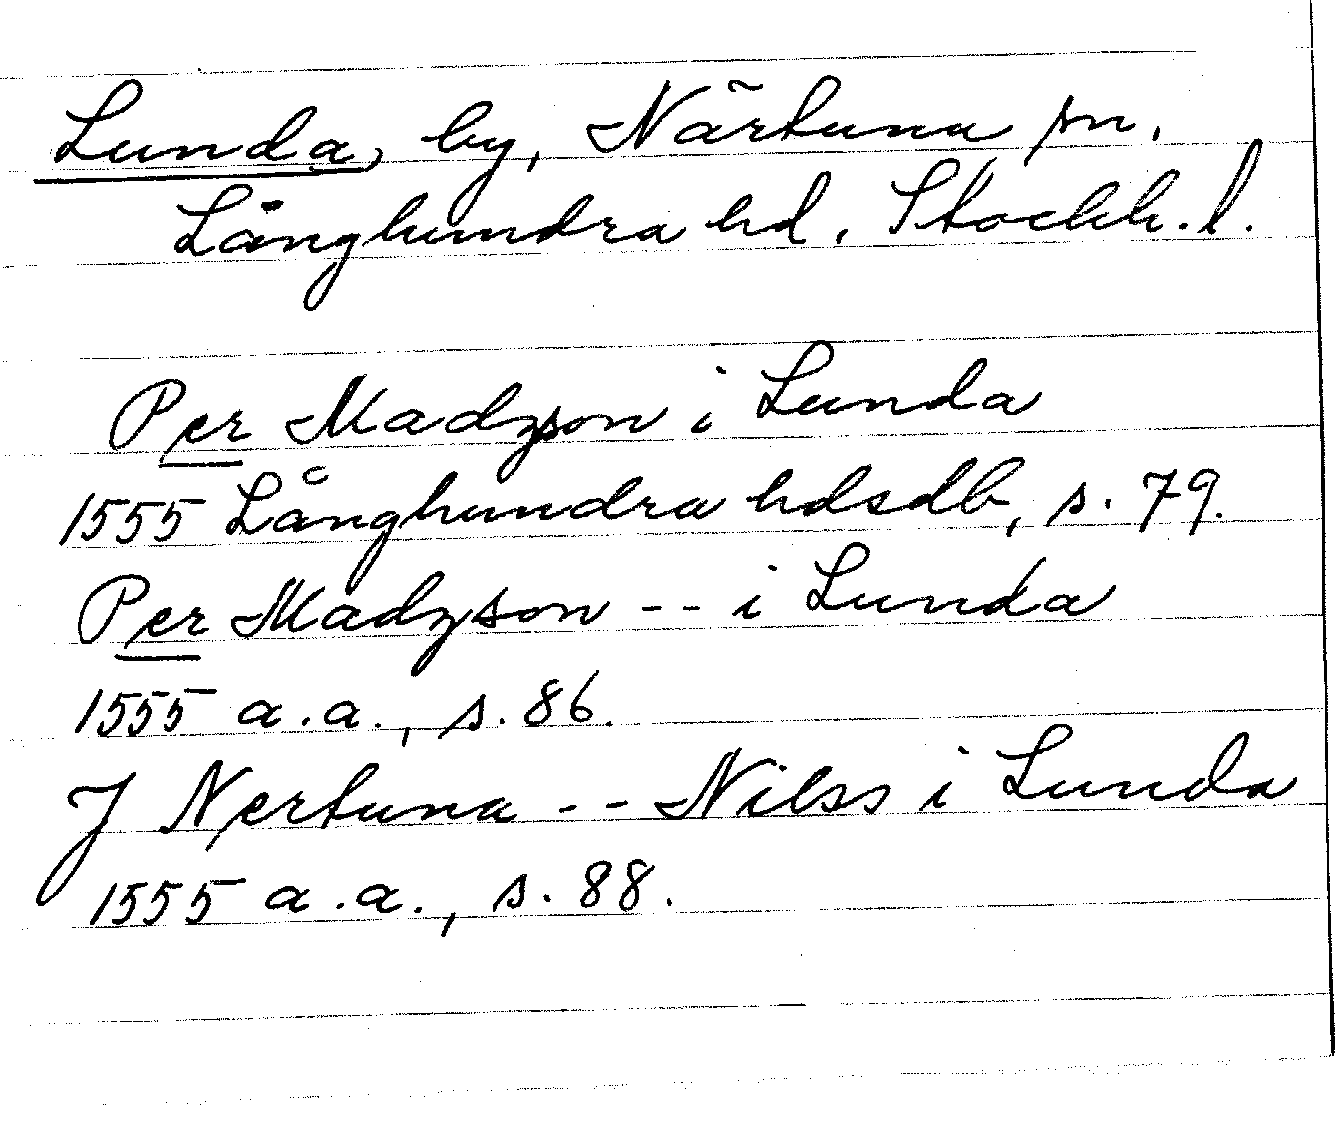 Lunda, by, Närtuna sn,
Långhundra hd, Stockh. l.
Per Madzson i Lunda
1555 Långhundra hdsdb, s. 79.
Per Madzson -- i Lunda
1555 a.a., s. 86.
J Nertuna -- Nilss i Lunda
1555 a.a., s. 88.